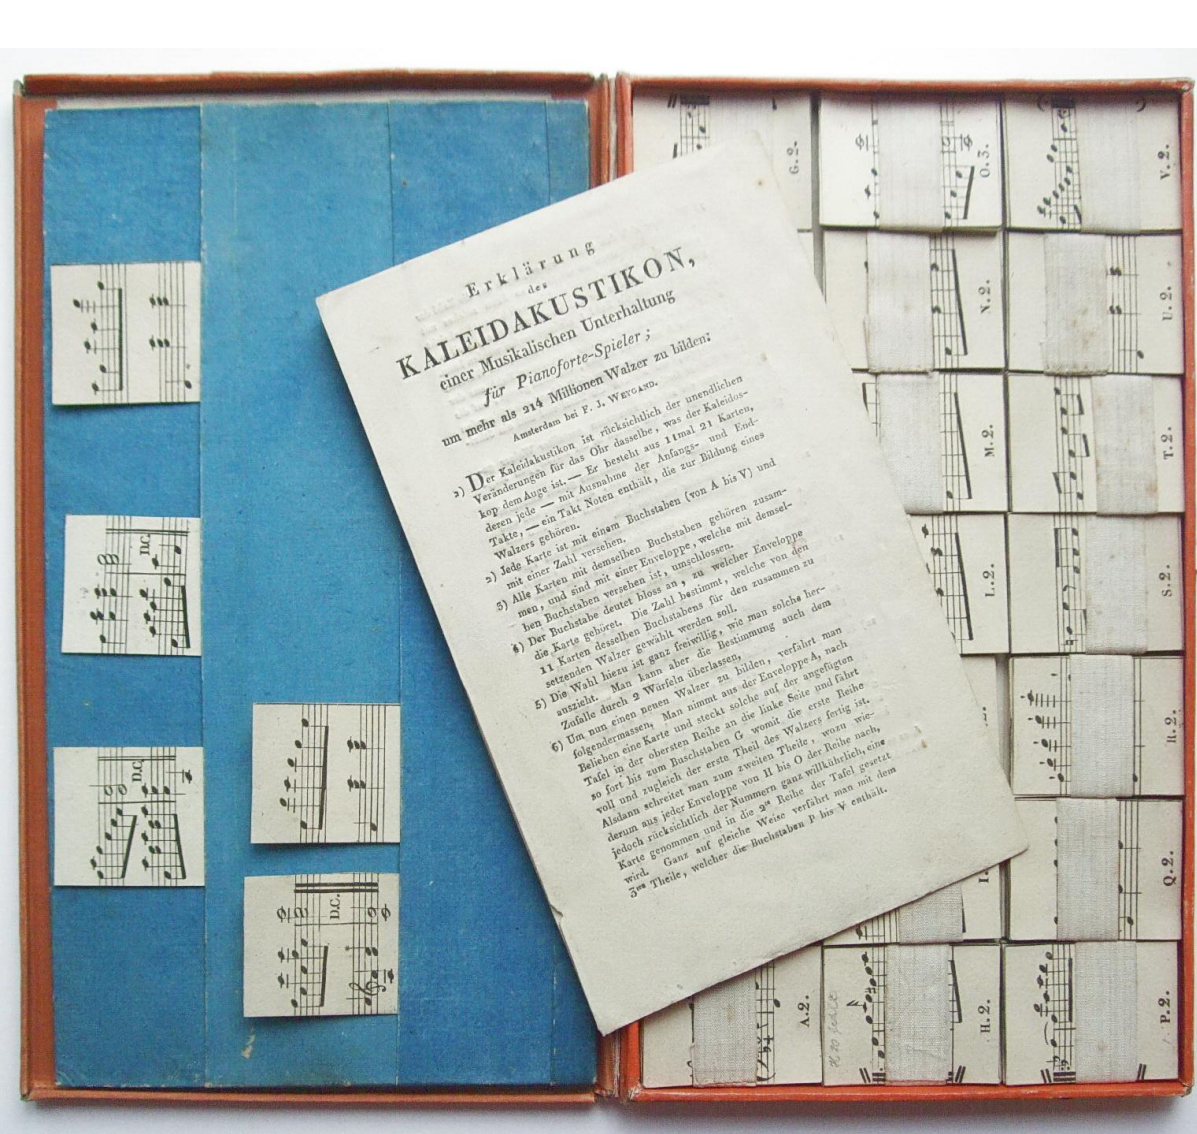 Erklärung
des
KALEIDAKUSTIKON,
einer Musikalischen Unterhaltung
für Pianoforte-Spieler;
um mehr als 214 Millionen Walzer zu bilden:
Amsterdam bei F. J. WEYGAND.
1) Der Kaleidakustikon ist rücksichtlich der unendlichen
Veränderungen für das Ohr dasselbe, was der Kaleidos-
kop dem Auge ist. — Er besteht aus 11mal 21 Karten,
deren jede — mit Ausnahme der Anfangs- und End-
Takte, — ein Takt Noten enthält, die zur Bildung eines
Walzers gehören.
2) Jede Karte ist mit einem Buchstaben (von A bis V) und
mit einer Zahl versehen.
3) Alle Karten mit demselben Buchstaben gehören zusam-
men, und sind mit einer Enveloppe, welche mit demsel-
ben Buchstaben versehen ist, umschlossen.
4) Der Buchstabe deutet bloss an, zu welcher Enveloppe
die Karte gehöret. Die Zahl bestimmt, welche von den
11 Karten desselben Buchstabens für den zusammen zu
setzenden Walzer gewählt werden soll.
5) Die Wahl hiezu ist ganz freiwillig, wie man solche her-
auszieht. Man kann aber die Bestimmung auch dem
Zufalle durch 2 Würfeln überlassen.
6) Um nun einen neuen Walzer zu bilden, verfährt man
folgendermassen. Man nimmt aus der Enveloppe A, nach
Belieben eine Karte und steckt solche auf der angefügten
Tafel in der obersten Reihe an die linke Seite und fährt
so fort bis zum Buschstaben G womit die erste Reihe
voll und zugleich der erste Theil des Walzers fertig ist.
Alsdann schreitet man zum zweiten Theile, wozu wie-
derum aus jeder Enveloppe von H bis O der Reihe nach,
jedoch rücksichtlich der Nummern ganz willkührlich, eine
Karte genommen und in die 2te Reihe der Tafel gesetzt
wird. Ganz auf gleiche Weise verfährt man mit dem
3ten Theile, welcher die Buchstaben P bis V enthält.
D.C.
D.C.
D.C.
G. 2.
O. 3.
V. 2.
N. 2.
U. 2.
M. 2.
T. 2.
L. 2.
S. 2.
R. 2.
I.
Q. 2.
A. 2.
H. 2.
P. 2.